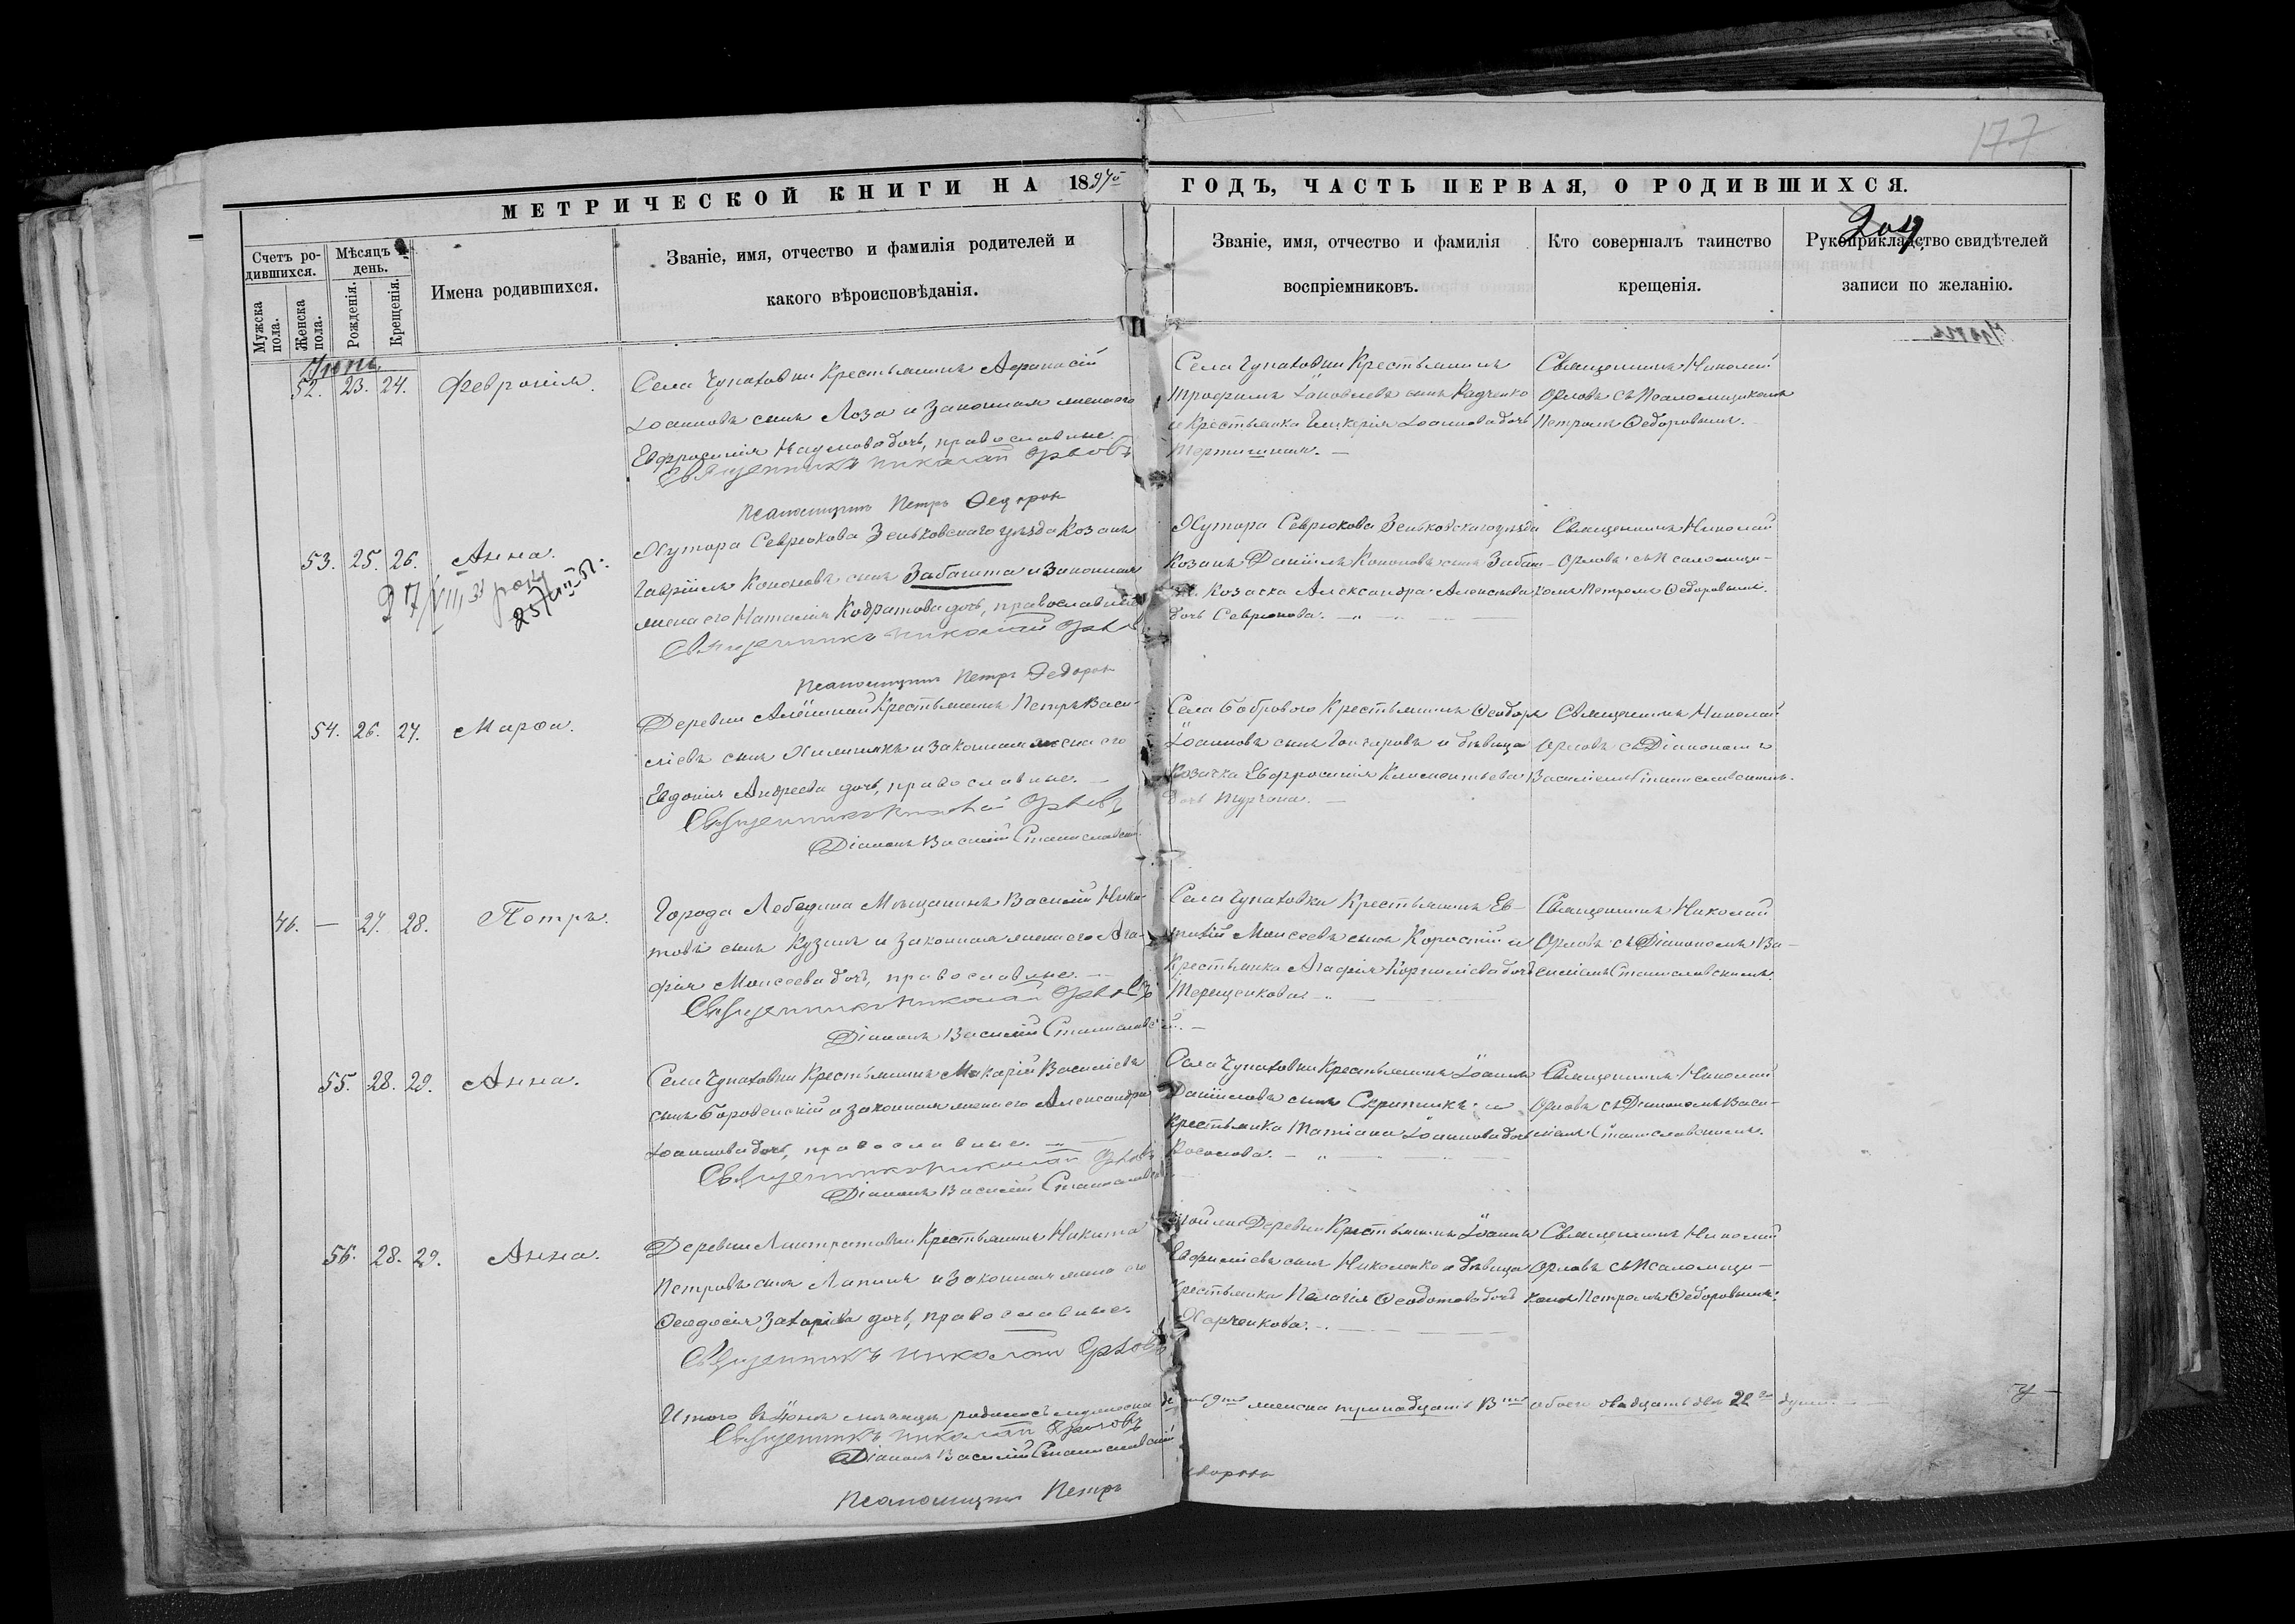 177
МЕТРИЧЕСКОЙ КНИГИ НА 1897й ГОДЪ, ЧАСТЬ ПЕРВАЯ, О РОДИВШИХСЯ.
Счетъ родившихся.
Мужска пола.
Женска пола.
Мѣсяцъ и день.
Рожденія.
Крещенія.
Имена родившихся.
Званіе, имя, отчество и фамилія родителей и
какого вѣроисповѣданія.
Званіе, имя, отчество и фамилія
воспріемниковъ.
Кто совершалъ таинство
крещенія.
Рукоприкладство свидѣтелей
записи по желанію.
Іюнь
52. 23. 24. Февронія.
Села Чупаховки Крестьянинъ Аѳанасій
Іоанновъ сынъ Лоза и законная жена его
Евфросинія Наумова дочь, православные.
Священникъ Николай Орловъ
Псаломщикъ Петръ Ѳедоров
Села Чупаховки Крестьянинъ
Трофимъ Іаковлевъ сынъ Радченко
и Крестьянка Гликерія Іоаннова дочь
Священникъ Николай
Орловъ съ Псаломщикомъ
Петромъ Ѳедоровымъ.
53. 25. 26. Анна.
Хутора Северюкова Зеньковскаго уѣзда Козакъ
Гавріилъ Кононовъ сынъ Забашта и законная
жена его Наталія Кодратова дочь, православные
Священникъ Николай Орлов
Псаломщикъ Петръ Ѳедоров
Хутора Севрюкова Зеньковскаго уѣзда
Козакъ Даніилъ Кононовъ сынъ Забаш-
та. Козачка Александра Алексѣева
дочь Севрюкова.
Священникъ Николай
Орловъ съ Псаломщи-
комъ Петромъ Ѳедоровымъ.
54. 26. 27. Марѳа.
Деревни Алёшной Крестьянинъ Петръ Васи-
ліевъ сынъ и законная жена его
Евдокія Андреева дочь, православные.
Священникъ Николай Орловъ
Діаконъ Василій Станиславскій
Села Боброваго Крестьянинъ Ѳеодоръ
Іоанновъ сынъ Гончаровъ и дѣвица
Козачка Евфросинія Климентьева
дочь
Священникъ Николай
Орловъ съ Діакономъ
Василіемъ Станиславскимъ.
46. — 27. 28. Петръ.
Города Лебедина Мѣщанинъ Василій Ники-
товъ сынъ Кузинъ и законная жена его Ага-
фія Моисеева дочь, православные.
Священникъ Николай Орловъ
Діаконъ Василій Станиславскій.
Села Чупаховки Крестьянинъ Ев-
Моисеевъ сынъ Коростій и
Крестьянка Агафія Корниліева дочь
Терещенкова
Священникъ Николай
Орловъ съ Діакономъ Ва-
силіемъ Станиславскимъ.
55. 28. 29. Анна.
Села Чупаховки Крестьянинъ Макарій Василіевъ
сынъ Боровенскій и законная жена его Александра
Іоаннова дочь, православные.
Священникъ Николай Орловъ
Діаконъ Василій Станиславскій
Села Чупаховки Крестьянинъ Іоаннъ
Даніиловъ сынъ Скрипникъ и
Крестьянка Татіана Іоаннова дочь
Священникъ Николай
Орловъ съ Діакономъ Васи-
ліемъ Станиславскимъ.
56. 28. 29. Анна.
Деревни Крестьянинъ Никита
Петровъ сынъ Лапинъ и законная жена его
Ѳеодосія Захаріева дочь, православные.
Священникъ Николай Орловъ
Той же Деревни Крестьянинъ Іоаннъ
Евфиміевъ сынъ Николенко и дѣвица
Крестьянка Пелагія Ѳеодотова дочь
Харченкова.
Священникъ Николай
Орловъ съ Псаломщи-
комъ Петромъ Ѳедоровымъ.
Итого въ Іюнѣ мѣсяцѣ родилось мужеска девять 9ть женска тринадцать 13ть обоего двадцать двѣ 22 души.
Священникъ Николай Орловъ
Діаконъ Василій Станиславскій
Псаломщикъ Петръ Ѳедоров